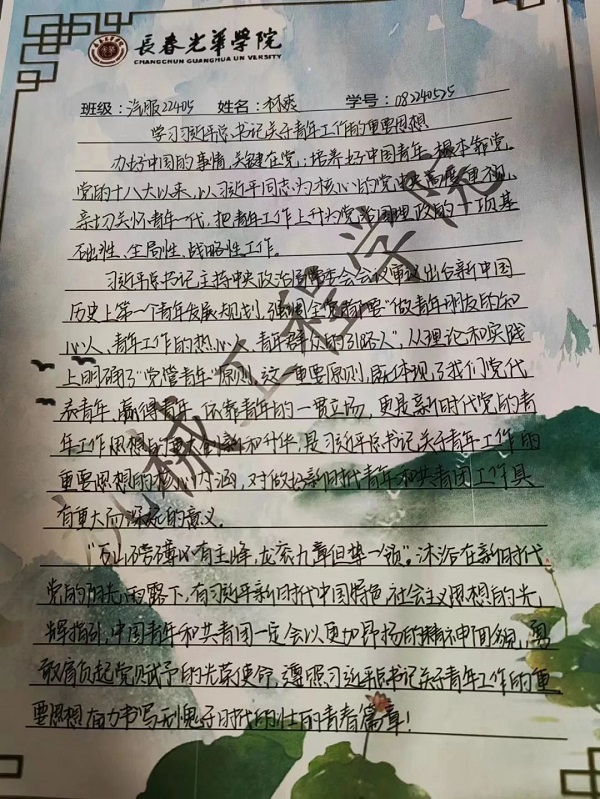 長春光華學院
CHANGCHUN GUANGHUA UNIVERSITY
班级：汽服22405 姓名：林爽 学号：082240525
学习习近平总书记关于青年工作的重要思想
办好中国的事情，关键在党；培养好中国青年，根本靠党。
党的十八大以来，以习近平同志为核心的党中央高度重视、
亲切关怀青年一代，把青年工作上升为党治国理政的一项基
础性、全局性、战略性工作。
习近平总书记主持中央政治局常委会会议审议出台新中国
历史上第一个青年发展规划，强调全党都要“做青年朋友的知
心人、青年工作的热心人、青年群众的引路人”，从理论和实践
上明确了“党管青年”原则。这一重要原则，既体现了我们党代
表青年、赢得青年、依靠青年的一贯立场，更是新时代党的青
年工作思想的重大创新和升华，是习近平总书记关于青年工作的
重要思想的核心内涵，对做好新时代青年和共青团工作具
有重大而深远的意义。
“万山磅礴必有主峰，龙衮九章但挚一领”。沐浴在新时代
党的阳光雨露下，有习近平新时代中国特色社会主义思想的光
辉指引，中国青年和共青团一定会以更加昂扬的精神面貌，勇
敢肩负起党赋予的光荣使命，遵照习近平总书记关于青年工作的重
要思想奋力书写无愧于时代的壮的青春篇章！
机械工程学院